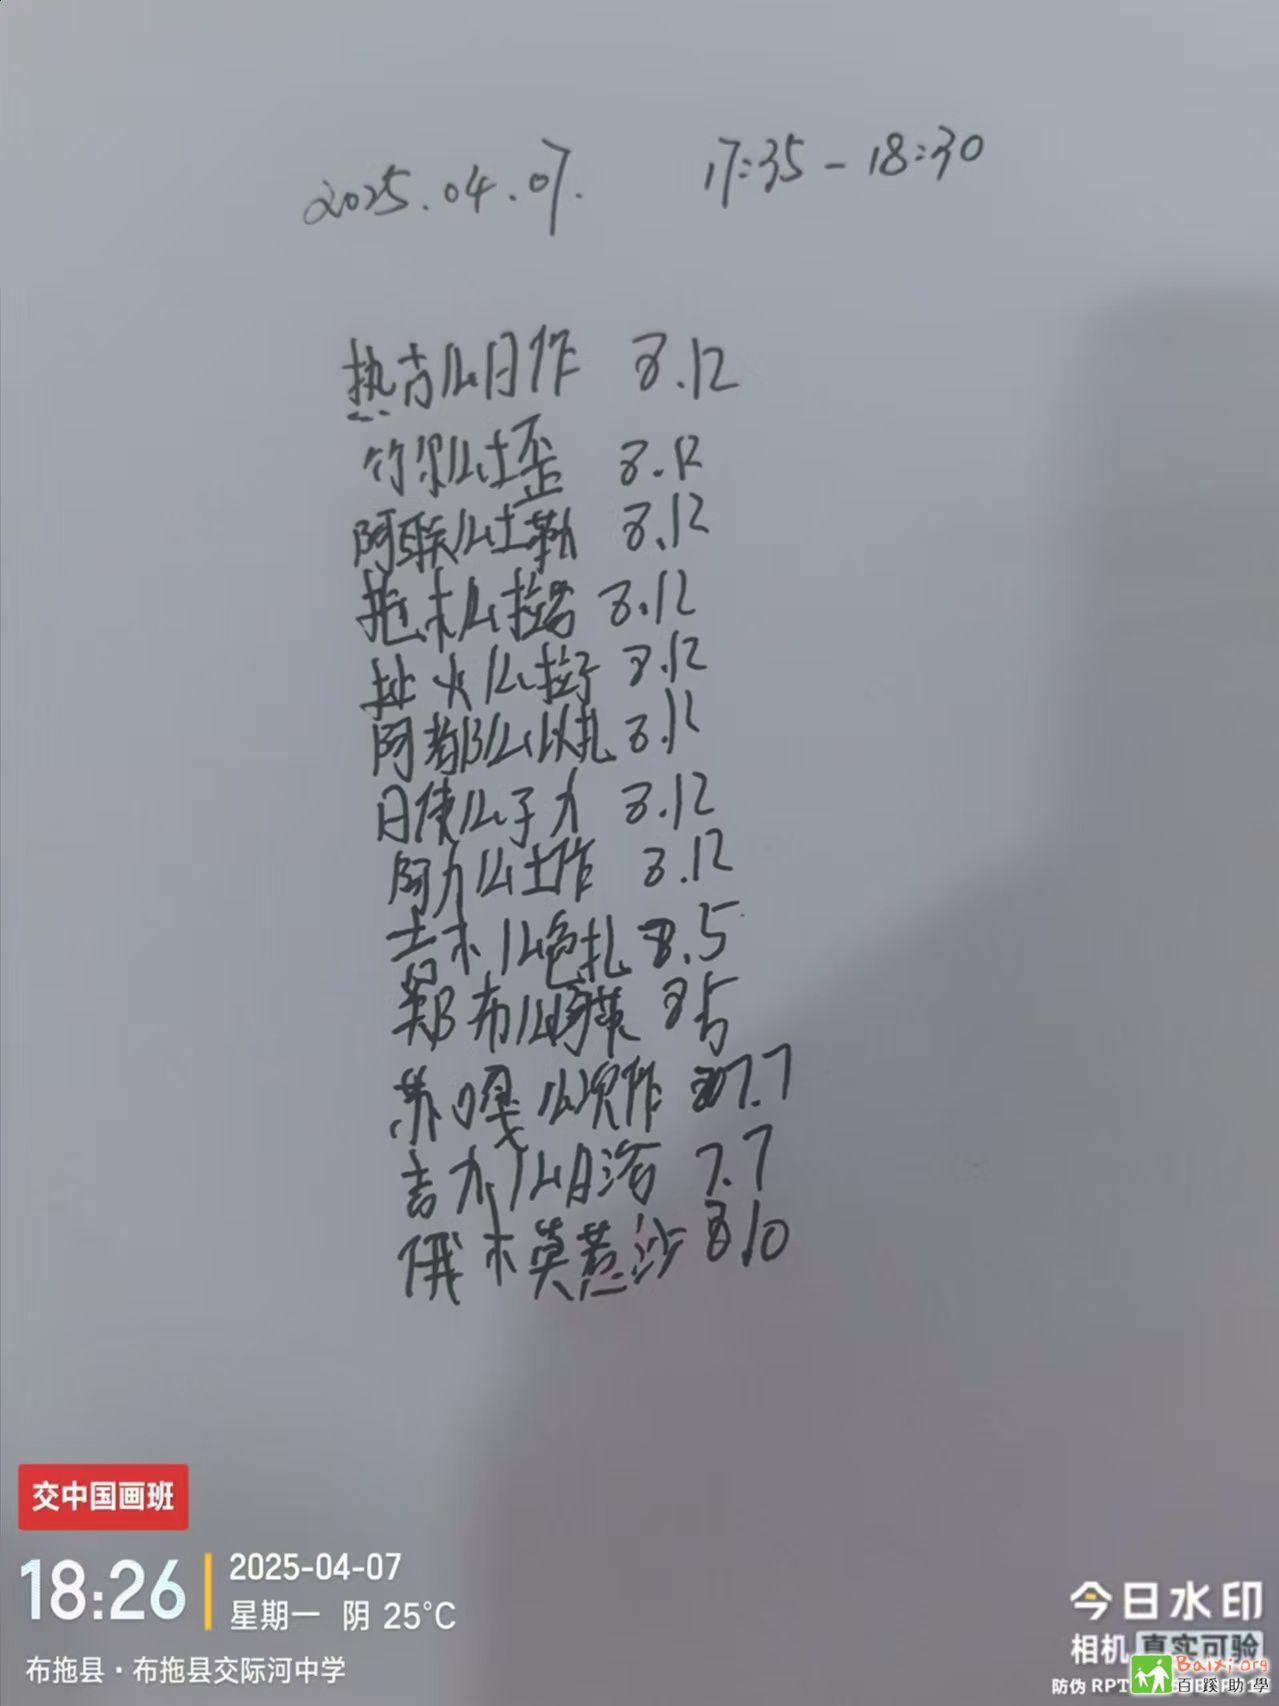 2025.04.07. 17:35-18:30
热古么日作 8.12
竹尔么土歪 8.12
阿联么土勒 8.12
拖木么拉 8.12
火么拉 8.12
阿都么以扎 8.12
日使么子力 8.12
阿力么土作 8.12
吉木么色扎 8.5
布么 8.5
苏嘎么次作 7.7
吉力么日洛 7.7
俄木莫惹沙 8.10
交中国画班
18:26
2025-04-07
星期一 阴 25°C
布拖县·布拖县交际河中学
今日水印
相机 真实可验
防伪 RPT
Baixi.org
百蹊助學